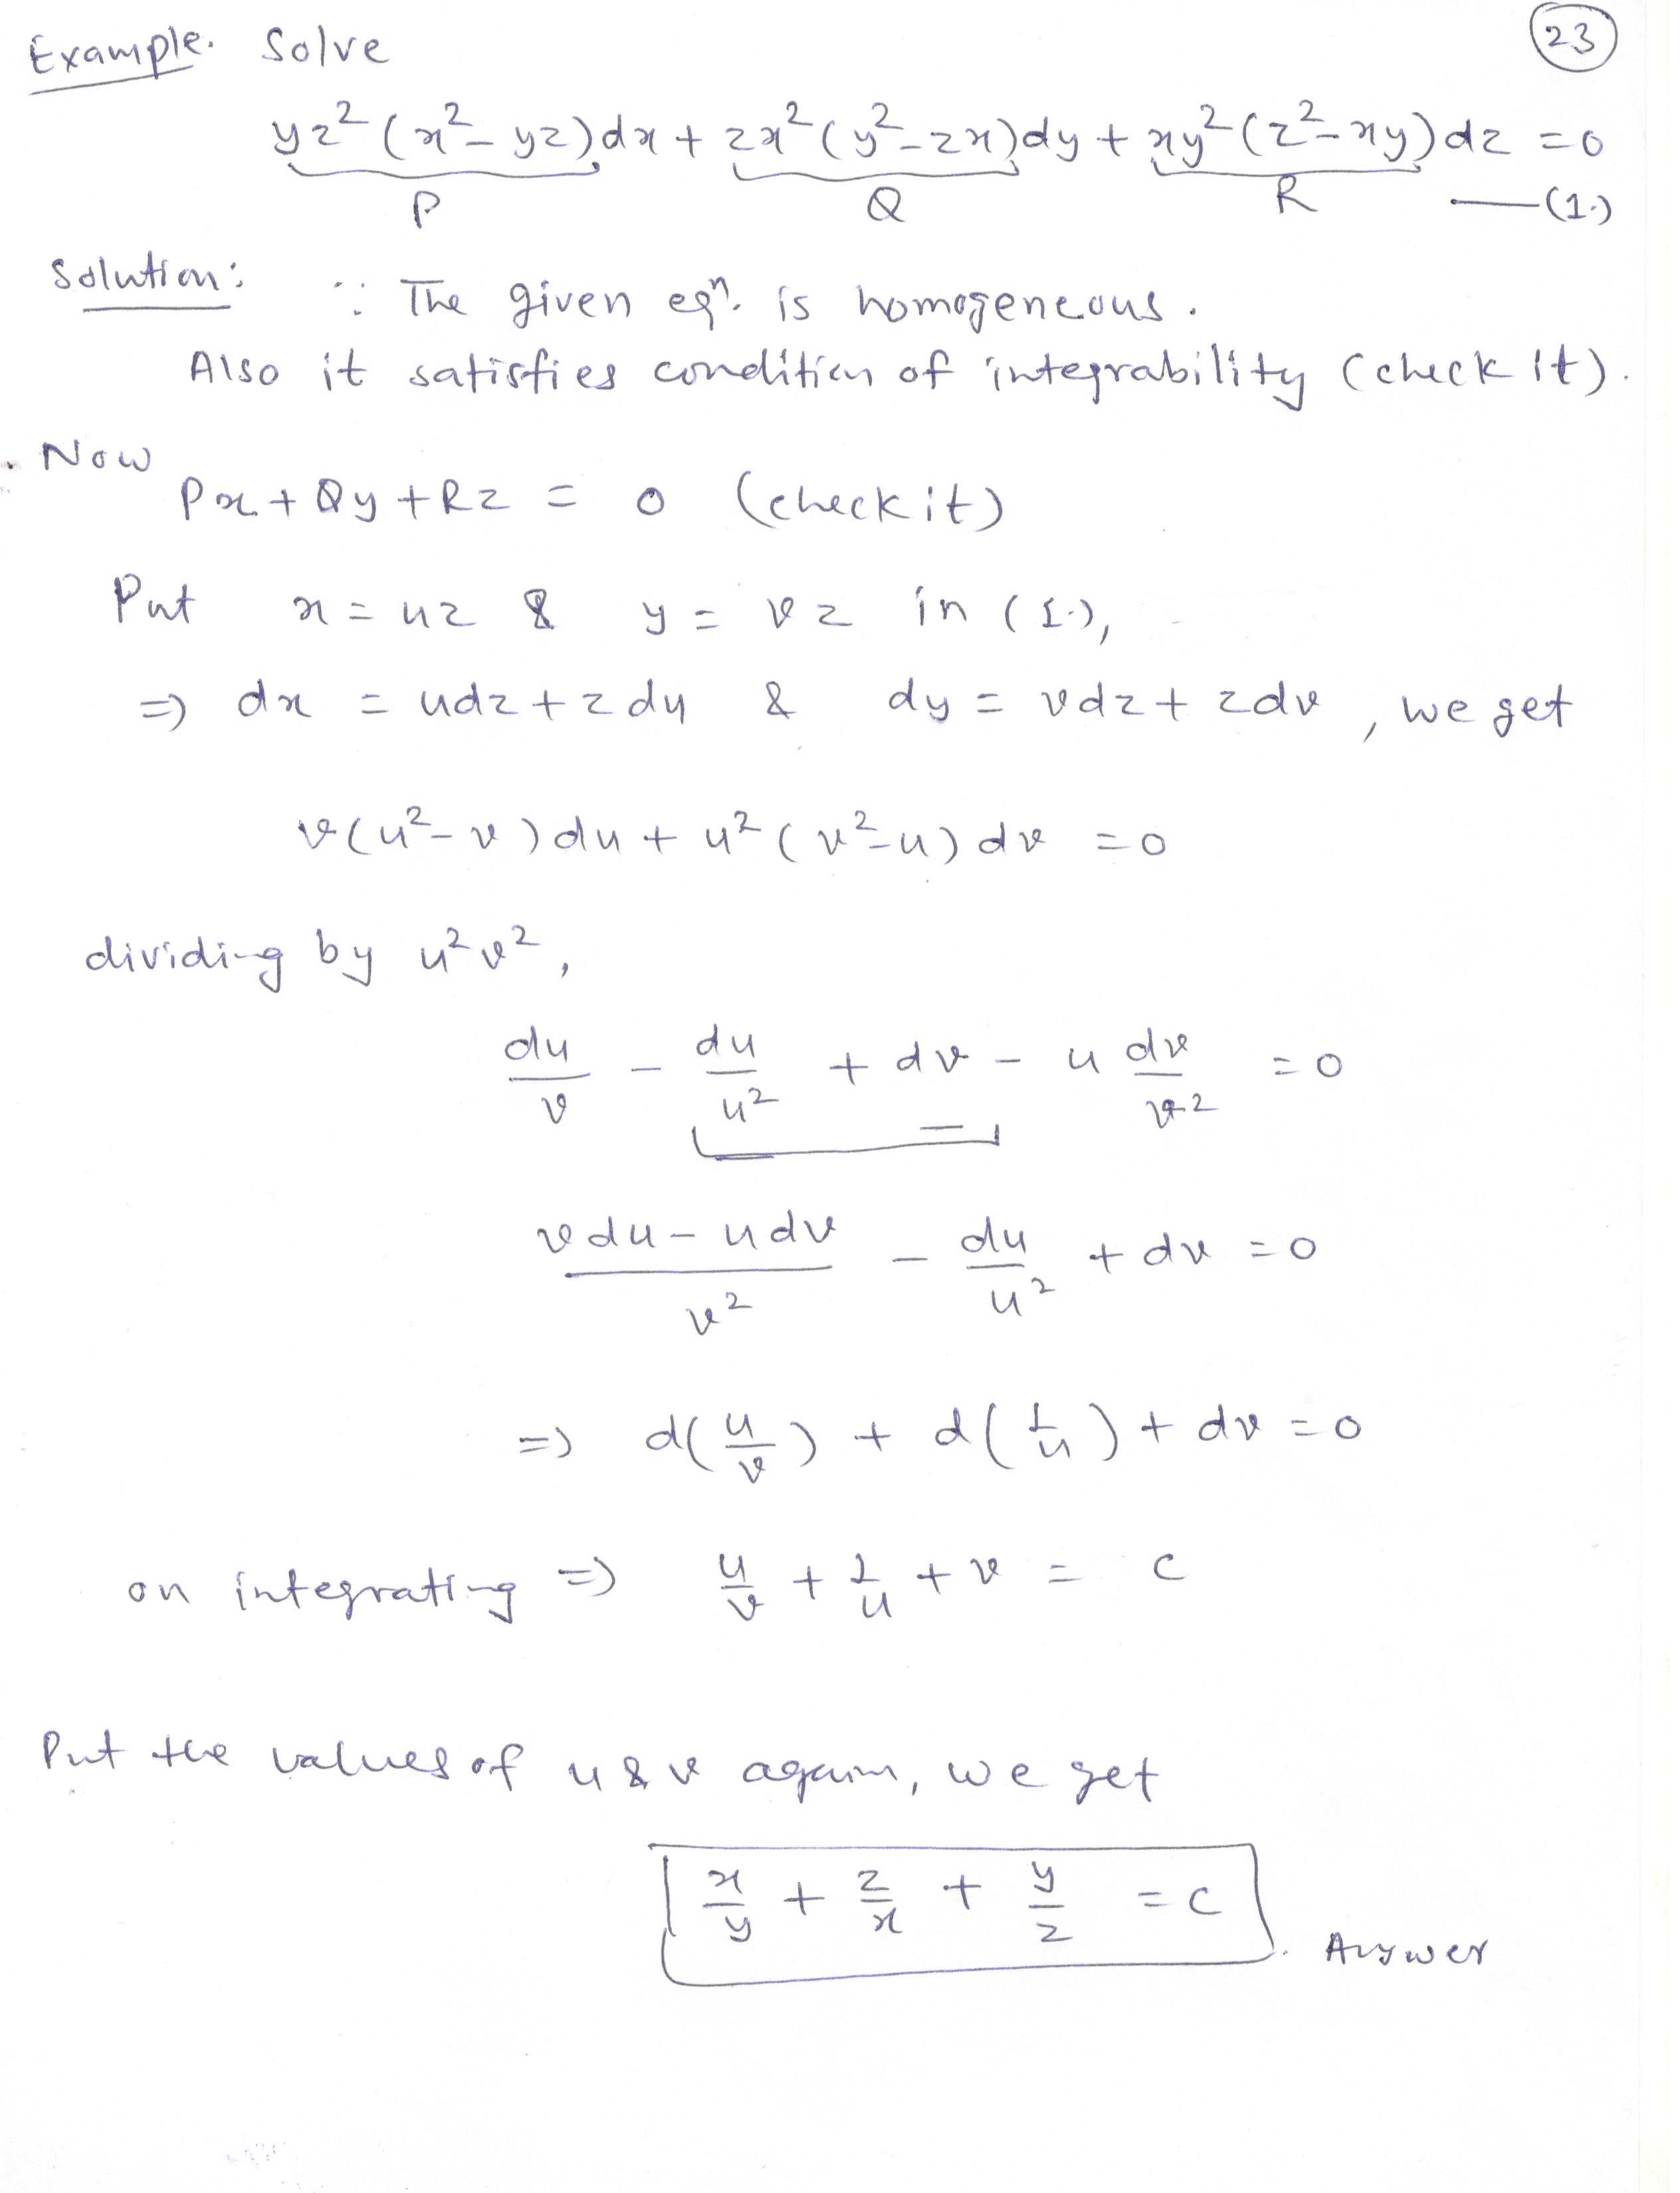 Example. Solve
23
yz²(x²-yz)dx + zx²(y²-zx)dy + xy²(z²-xy)dz = 0
P Q R —(1.)
Solution: ∵ The given eqn. is homogeneous.
Also it satisfies condition of integrability (check it).
Now
Px + Qy + Rz = 0 (check it)
Put x = uz & y = vz in (1.),
⇒ dx = udz + zdu & dy = vdz + zdv, we get
v(u²-v)du + u²(v²-u)dv = 0
dividing by u²v²,
du/v - du/u² + dv - u dv/v² = 0
(vdu - udv)/v² - du/u² + dv = 0
⇒ d(u/v) + d(1/u) + dv = 0
on integrating ⇒ u/v + 1/u + v = c
Put the values of u & v again, we get
x/y + z/x + y/z = c. Answer